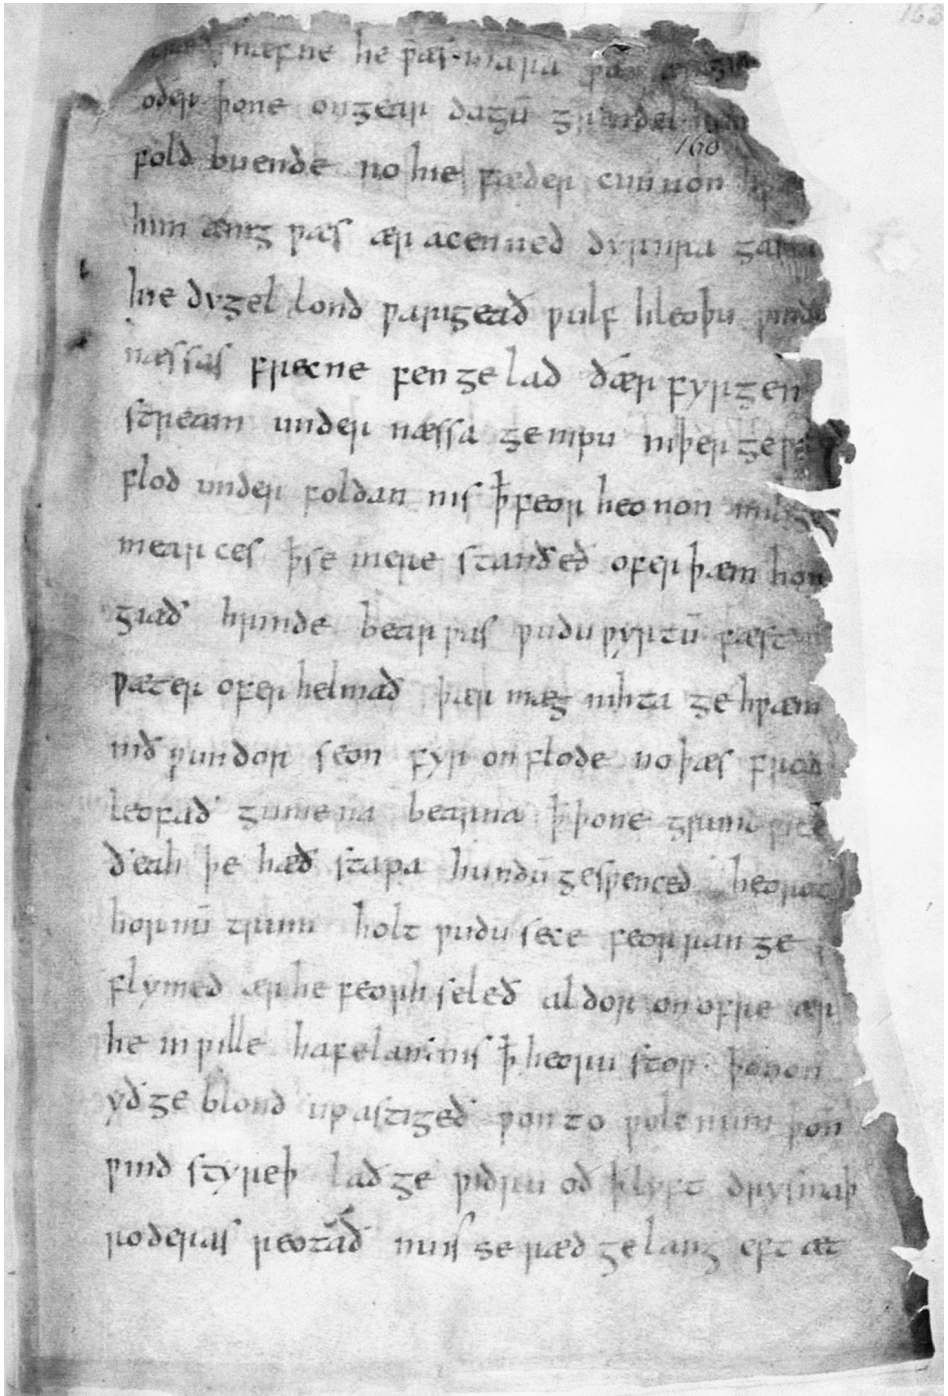 næfne he ƿæs mara
oðer þone on gear dagū grendel
160
fold buende no hie fæder cunnon
him ænig ƿæs ær acenned dyrnra gasta
hie dygel lond ƿarigeað ƿulf hleoþu
næssas frecne fen gelad ðær fyrgen
stream under næssa genipu niþer
flod under foldan nis ꝥ feor heonon mil
mearces ꝥ se mere standeð ofer þæm hon
giað hrinde bearƿas ƿudu ƿyrtū fæst
ƿæter ofer helmað þær mæg nihta ge hƿæm
nið ƿundor seon fyr on flode no þæs frod
leofað gumena bearna ꝥ þone grund ƿite
ðeah þe hæð stapa hundū gesƿenced heorot
hornū trum holt ƿudu sece feorran ge
flymed ær he feorh seleð aldor on ofre ær
he in ƿille hafelan nis ꝥ heoru stoƿ · þonon
yð ge blond up astigeð ƿon to ƿolcnum þoñ
ƿind styreþ lað ge ƿidru oð ꝥ lyft drysmaþ
roderas reotað nu is se ræd ge lang eft æt